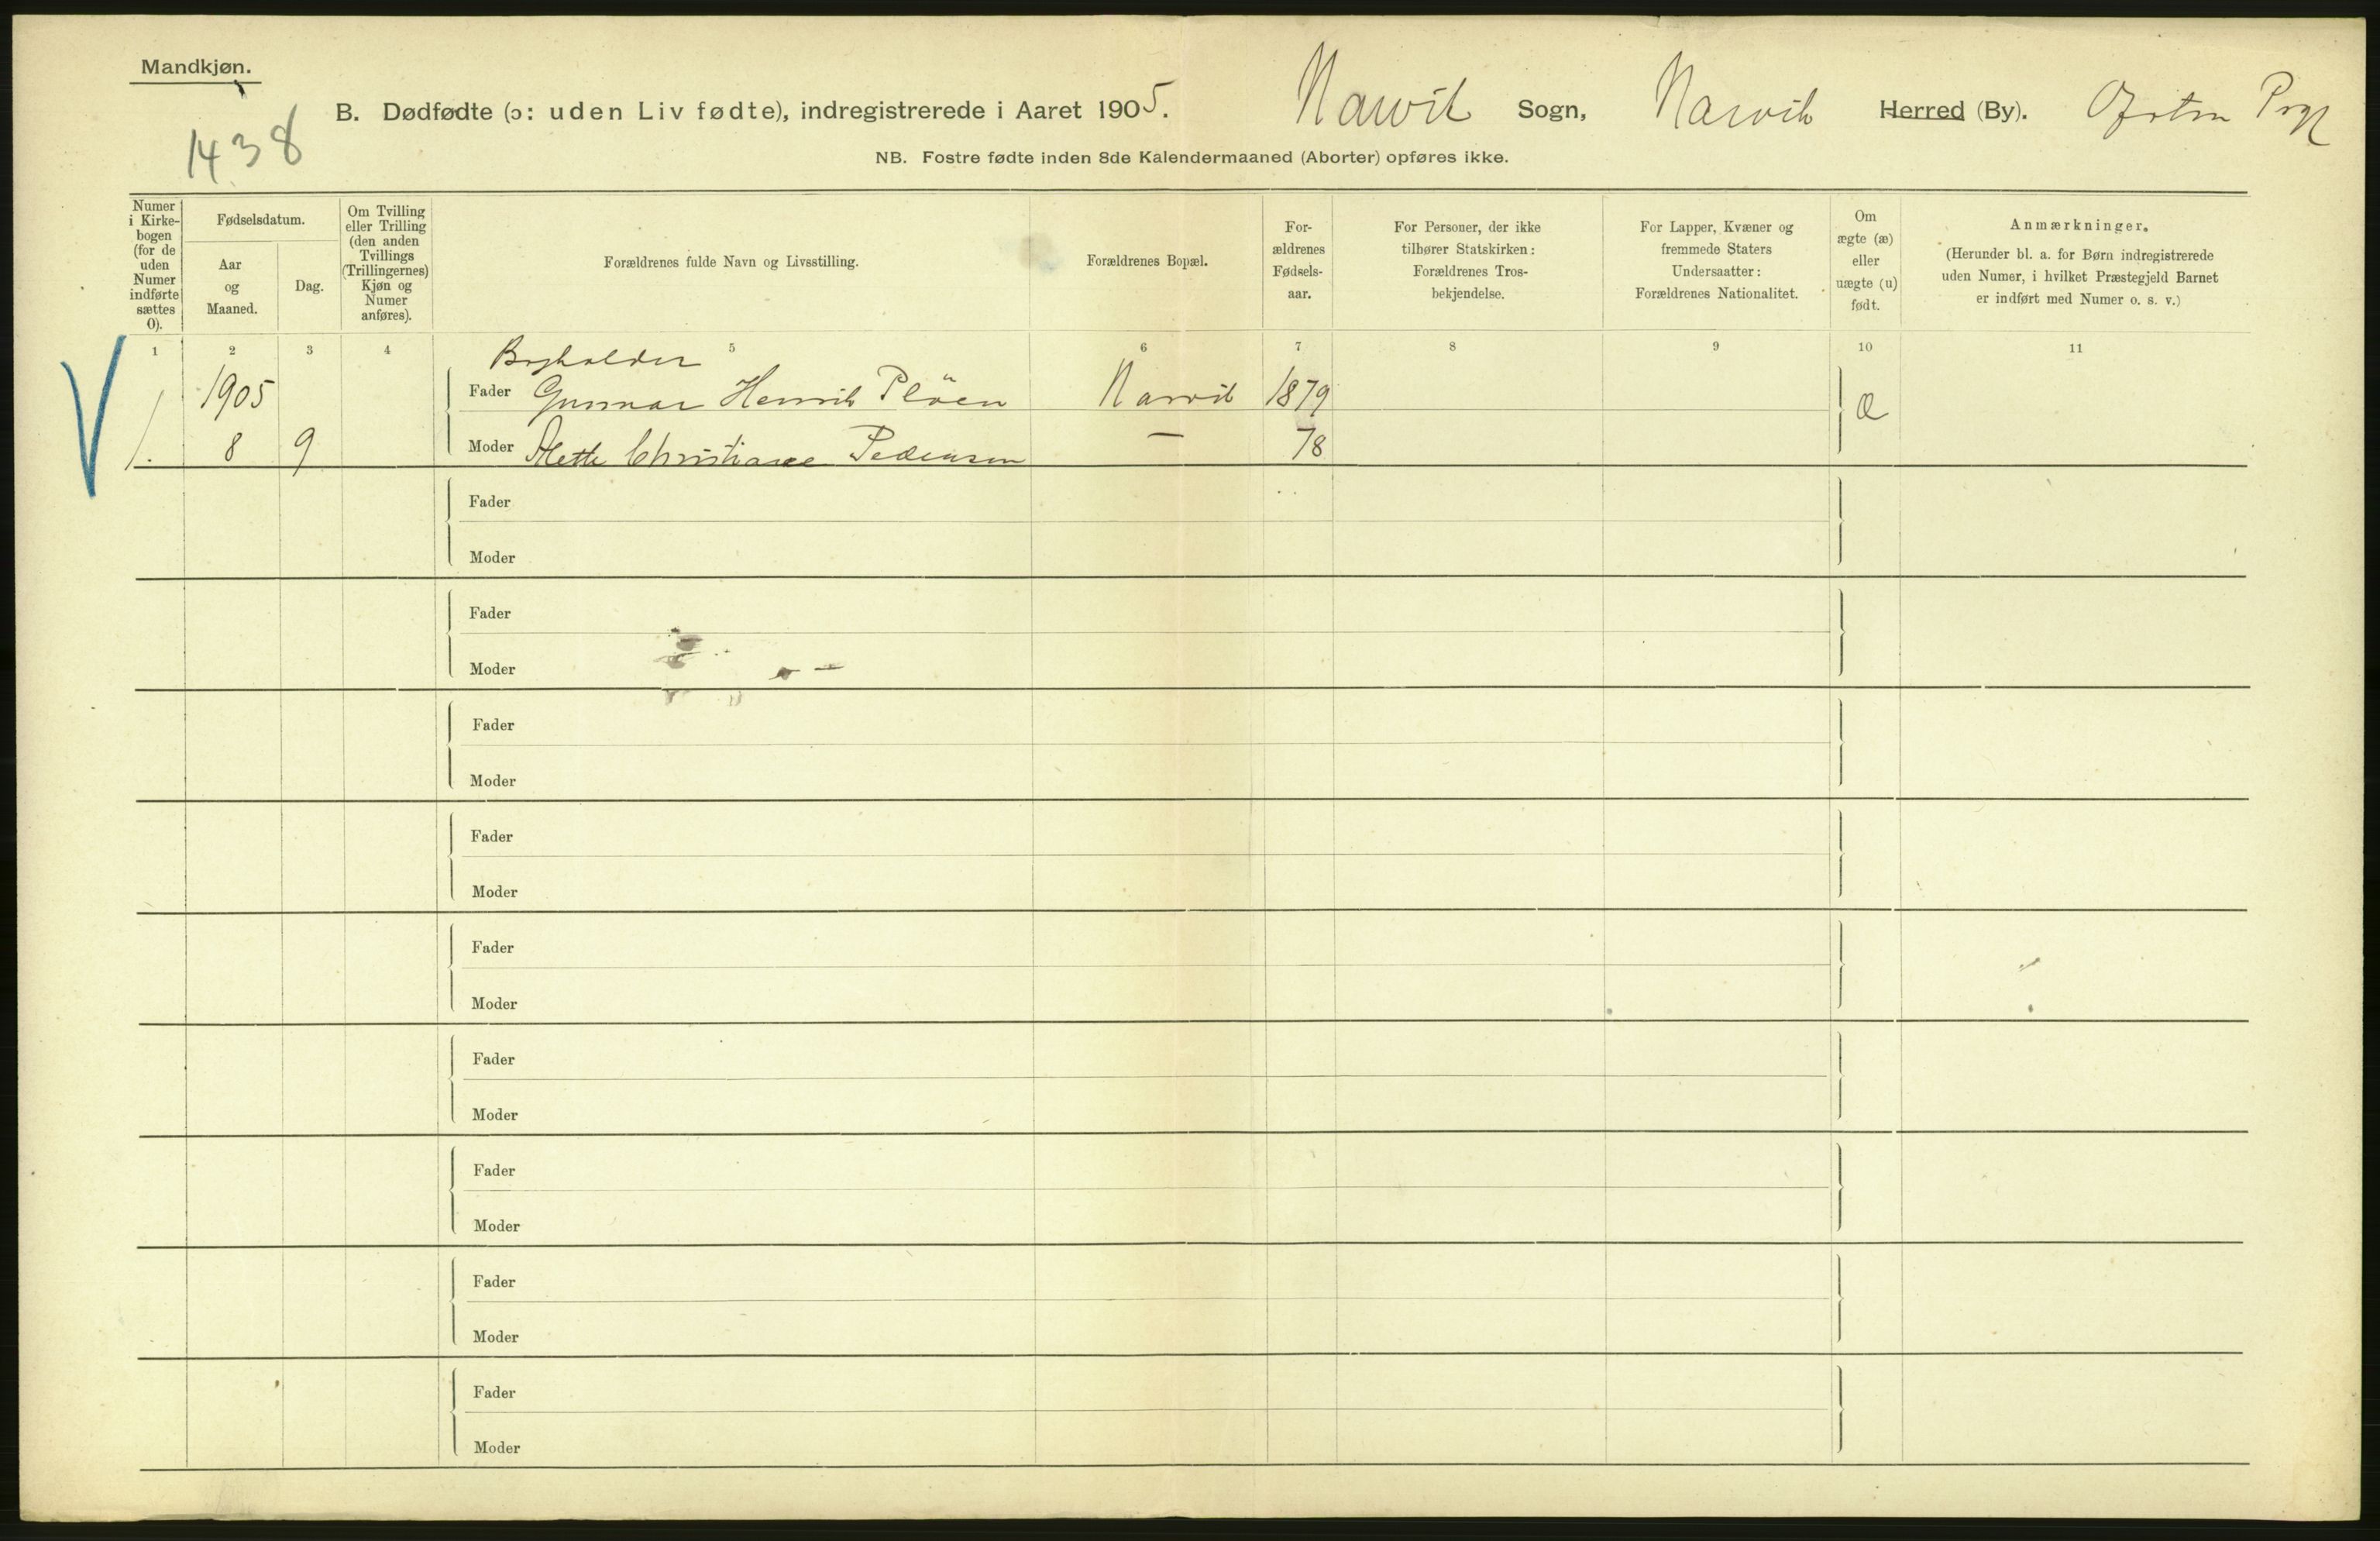 Mandkjøn.
1438
B. Dødfødte (ɔ: uden Liv fødte), indregistrerede i Aaret 1905. Narvik Sogn, Narvik Herred (By). Ofoten Prgj
NB. Fostre fødte inden 8de Kalendermaaned (Aborter) opføres ikke.
Numer
i Kirke-
bogen
(for de
uden
Numer
indførte
sættes
0).
Fødselsdatum.
Aar
og
Maaned.
Dag.
Om Tvilling
eller Trilling
(den anden
Tvillings
(Trillingernes)
Kjøn og
Numer
anføres).
Forældrenes fulde Navn og Livsstilling.
Forældrenes Bopæl.
For-
ældrenes
Fødsels-
aar.
For Personer, der ikke
tilhører Statskirken:
Forældrenes Tros-
bekjendelse.
For Lapper, Kvæner og
fremmede Staters
Undersaatter:
Forældrenes Nationalitet.
Om
ægte (æ)
eller
uægte (u)
født.
Anmærkninger.
(Herunder bl. a. for Børn indregistrerede
uden Numer, i hvilket Præstegjeld Barnet
er indført med Numer o. s. v.)
1 2 3 4 5 6 7 8 9 10 11
Bogholder
1905 Fader Gunnar Henrik Plöen Narvik 1879 æ
1. 8 9 Moder Mette Christiane Pedersen — 78
Fader
Moder
Fader
Moder
Fader
Moder
Fader
Moder
Fader
Moder
Fader
Moder
Fader
Moder
Fader
Moder
Fader
Moder